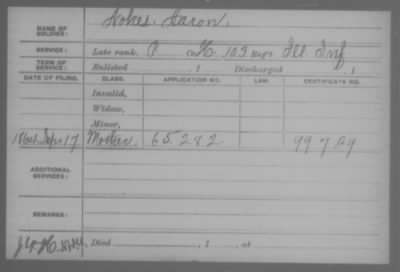 NAME OF SOLDIER: Nokes, Aaron.
SERVICE: Late rank, P Co. H. 103 Reg't Ill Inf
TERM OF SERVICE: Enlisted , 1 Discharged , 1
DATE OF FILING. CLASS. APPLICATION NO. LAW. CERTIFICATE NO.
Invalid,
Widow,
Minor,
1864 Sep. 17 Mother, 65.282 99729
ADDITIONAL SERVICES:
REMARKS:
Died , 1 , at